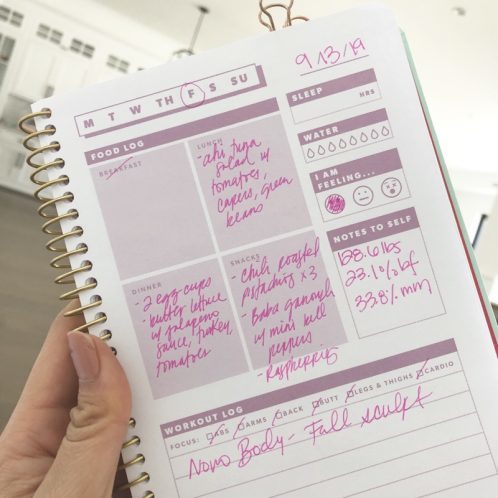 9/13/19
M T W TH F S SU
FOOD LOG
BREAKFAST
LUNCH
- ahi tuna
salad w/
tomatoes,
capers, green
beans
DINNER
- 2 egg cups
- butter lettuce
w/ jalapeno
sauce, turkey,
tomatoes
SNACKS
- chili roasted
pistachios x3
- Baba ganoush
w/ mini bell
peppers
- Raspberries
SLEEP
HRS
WATER
I AM
FEELING...
NOTES TO SELF
128.6 lbs
23.1% bf
33.8% mm
WORKOUT LOG
FOCUS: ABS ARMS BACK BUTT LEGS & THIGHS CARDIO
Novo Body - Full Sculpt